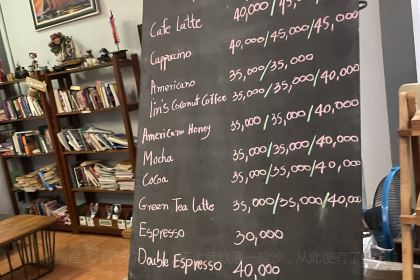 Cafe Latte 40,000/45,000
Cappucino 40,000/45,000/45,000
Americano 35,000/35,000
Lin's Coconut Coffee 35,000/35,000/40,000
Americano Honey 35,000/35,000/40,000
Mocha 35,000/35,000/40,000
Cocoa 35,000/35,000/40,000
Green Tea Latte 35,000/35,000/40,000
Espresso 30,000
Double Espresso 40,000